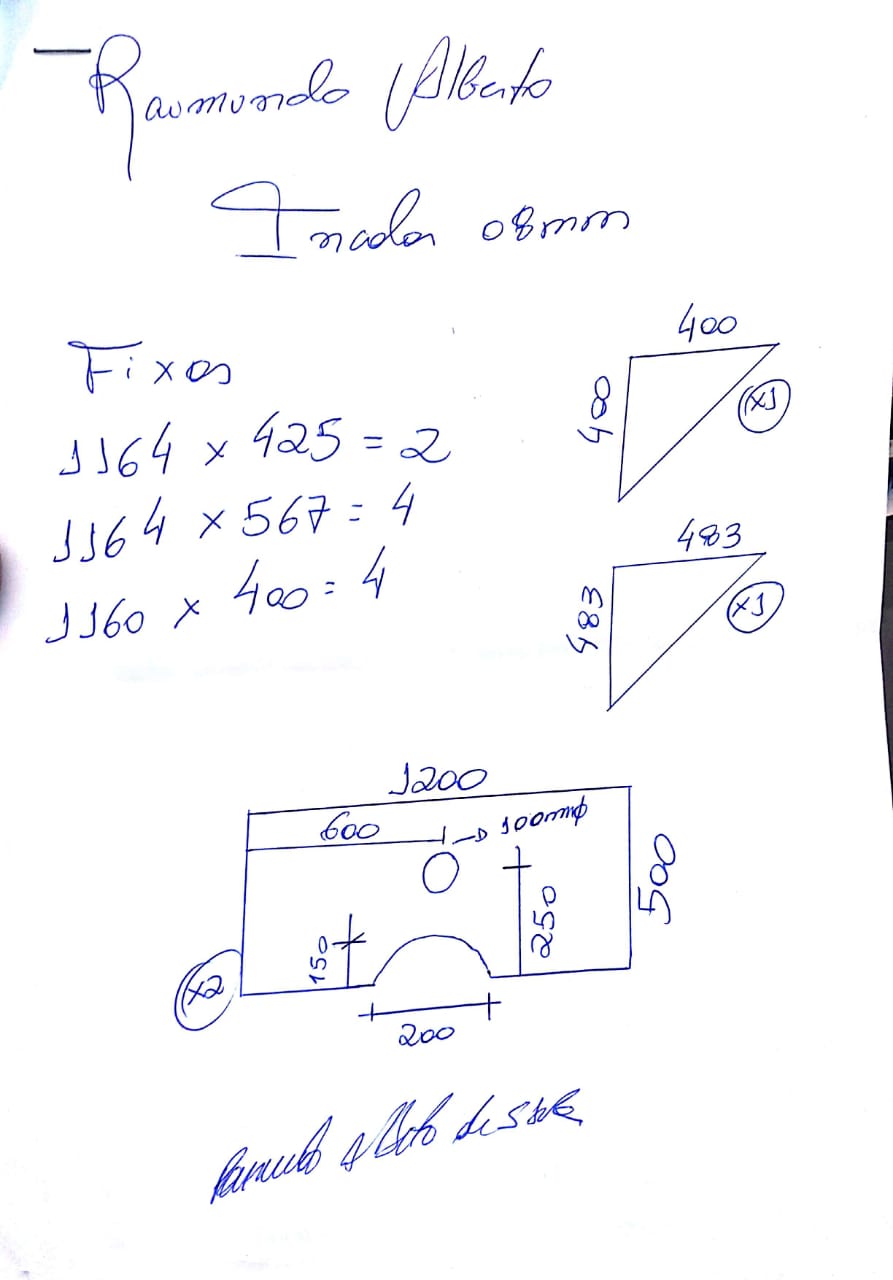 Raimundo Alberto
Incolor 08mm
Fixos
1164 x 425 = 2
1164 x 567 = 4
1160 x 400 = 4
400
400
x1
483
483
x1
1200
600
100mmø
500
250
150
x2
200